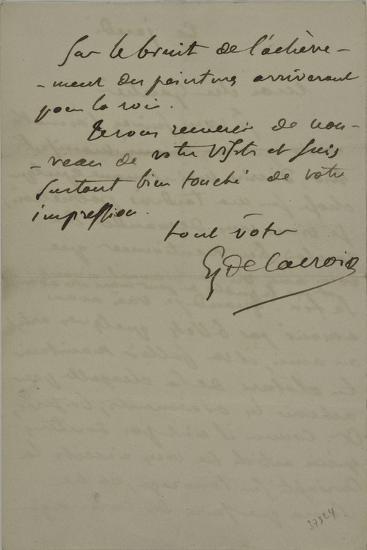 Sur le bruit de l'achève-
-ment des peintures arriveront
pour la voir.
Je vous remercie de nou-
-veau de votre visite et suis
surtout bien touché de votre
impression.
tout à votre
EugDelacroix